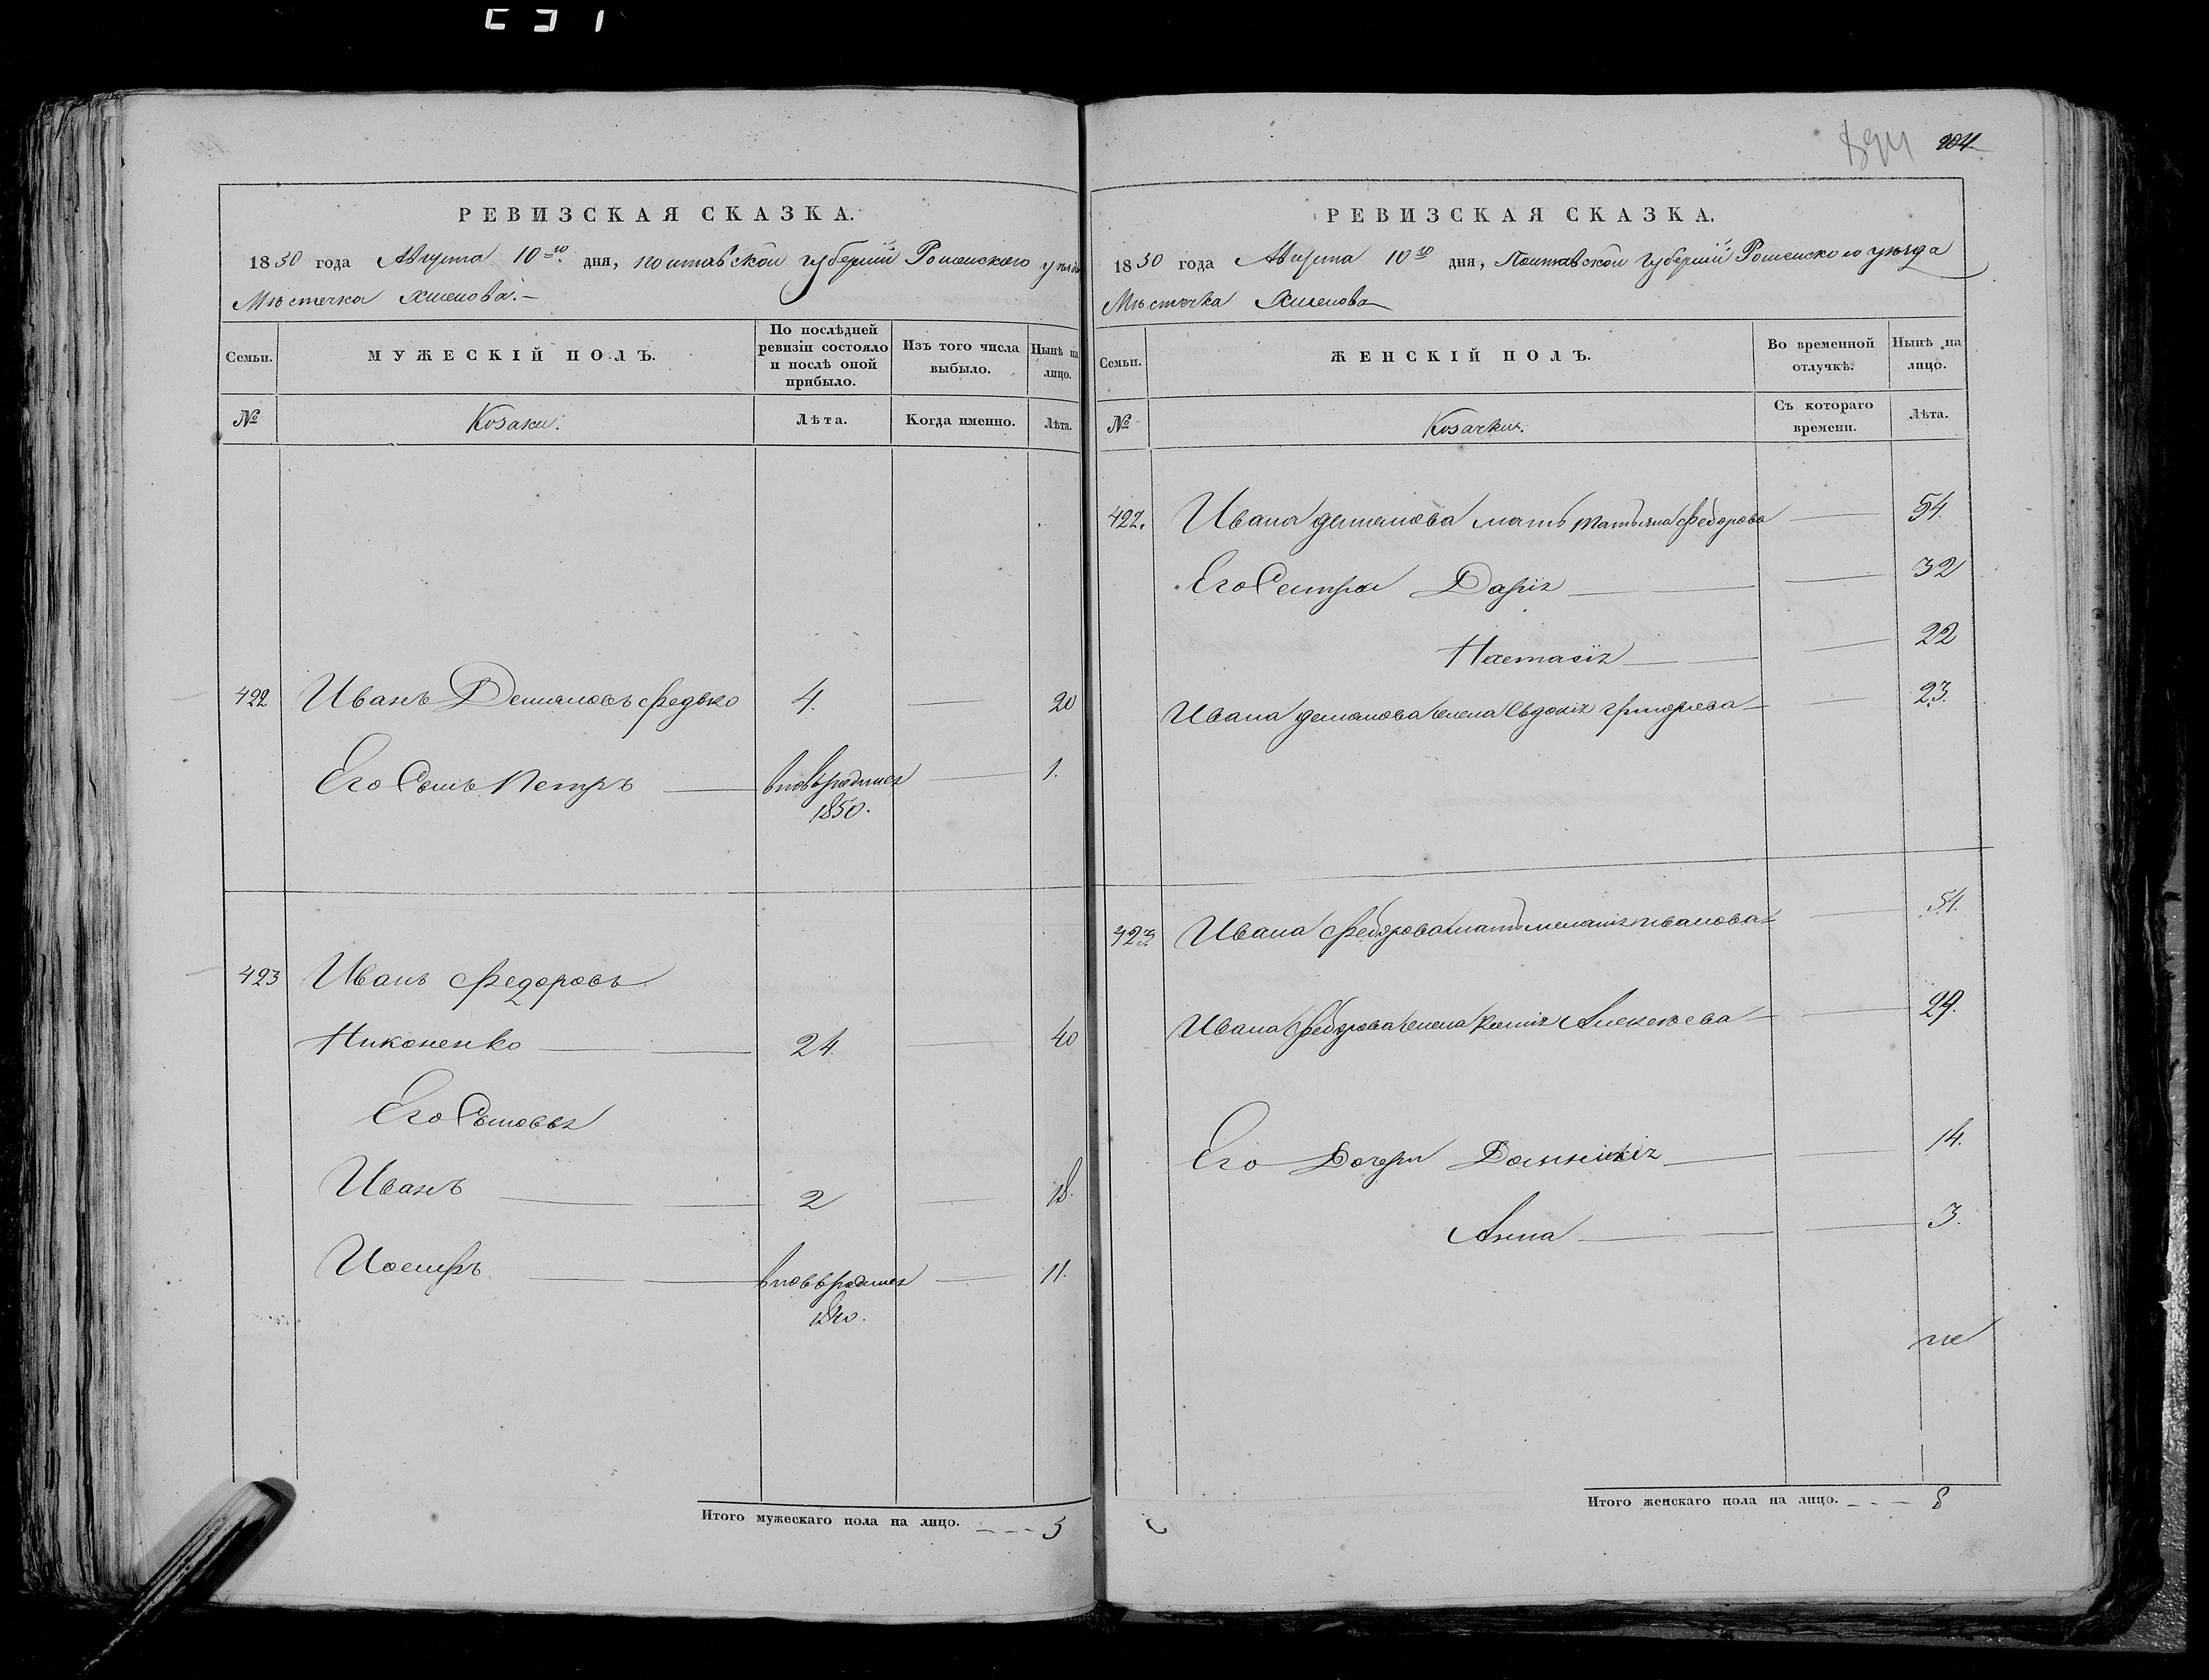 204
РЕВИЗСКАЯ СКАЗКА.
1850 года Августа 10го дня, Полтавской губерніи Роменского уѣзда
Мѣстечка Хмелова.
Семьи.
МУЖЕСКІЙ ПОЛЪ.
По послѣдней ревизіи состояло и послѣ оной прибыло.
Изъ того числа выбыло.
Нынѣ на лицо.
№
Козаки.
Лѣта.
Когда именно.
Лѣта.
422 Иванъ Демяновъ Федько 4. 20
Его Сынъ Петръ вновьродился 1. 
1850.
423 Иванъ Федоровъ
Никоненко 24. 40
Его Сыновья
Иванъ 2 18.
Иосифъ вновьродился 11.
1840.
Итого мужескаго пола на лицо. 5
РЕВИЗСКАЯ СКАЗКА.
1850 года Августа 10го дня, Полтавской губерніи Роменского уѣзда
Мѣстечка Хмелова
Семьи.
ЖЕНСКІЙ ПОЛЪ.
Во временной отлучкѣ.
Нынѣ на лицо.
№
Козачки.
Съ котораго времени.
Лѣта.
422. Ивана Демянова мать Татьяна Федорова 54.
Его Сестры Дарія 32
Настасія 22
Ивана Демянова жена Євдокія Григорьева 23.
423 Ивана Федорова мать Меланія Иванова 54.
Ивана Федорова жена Ксенія Алексѣева 29.
Его Дочери 14.
Анна 3.
Итого женскаго пола на лицо. 8